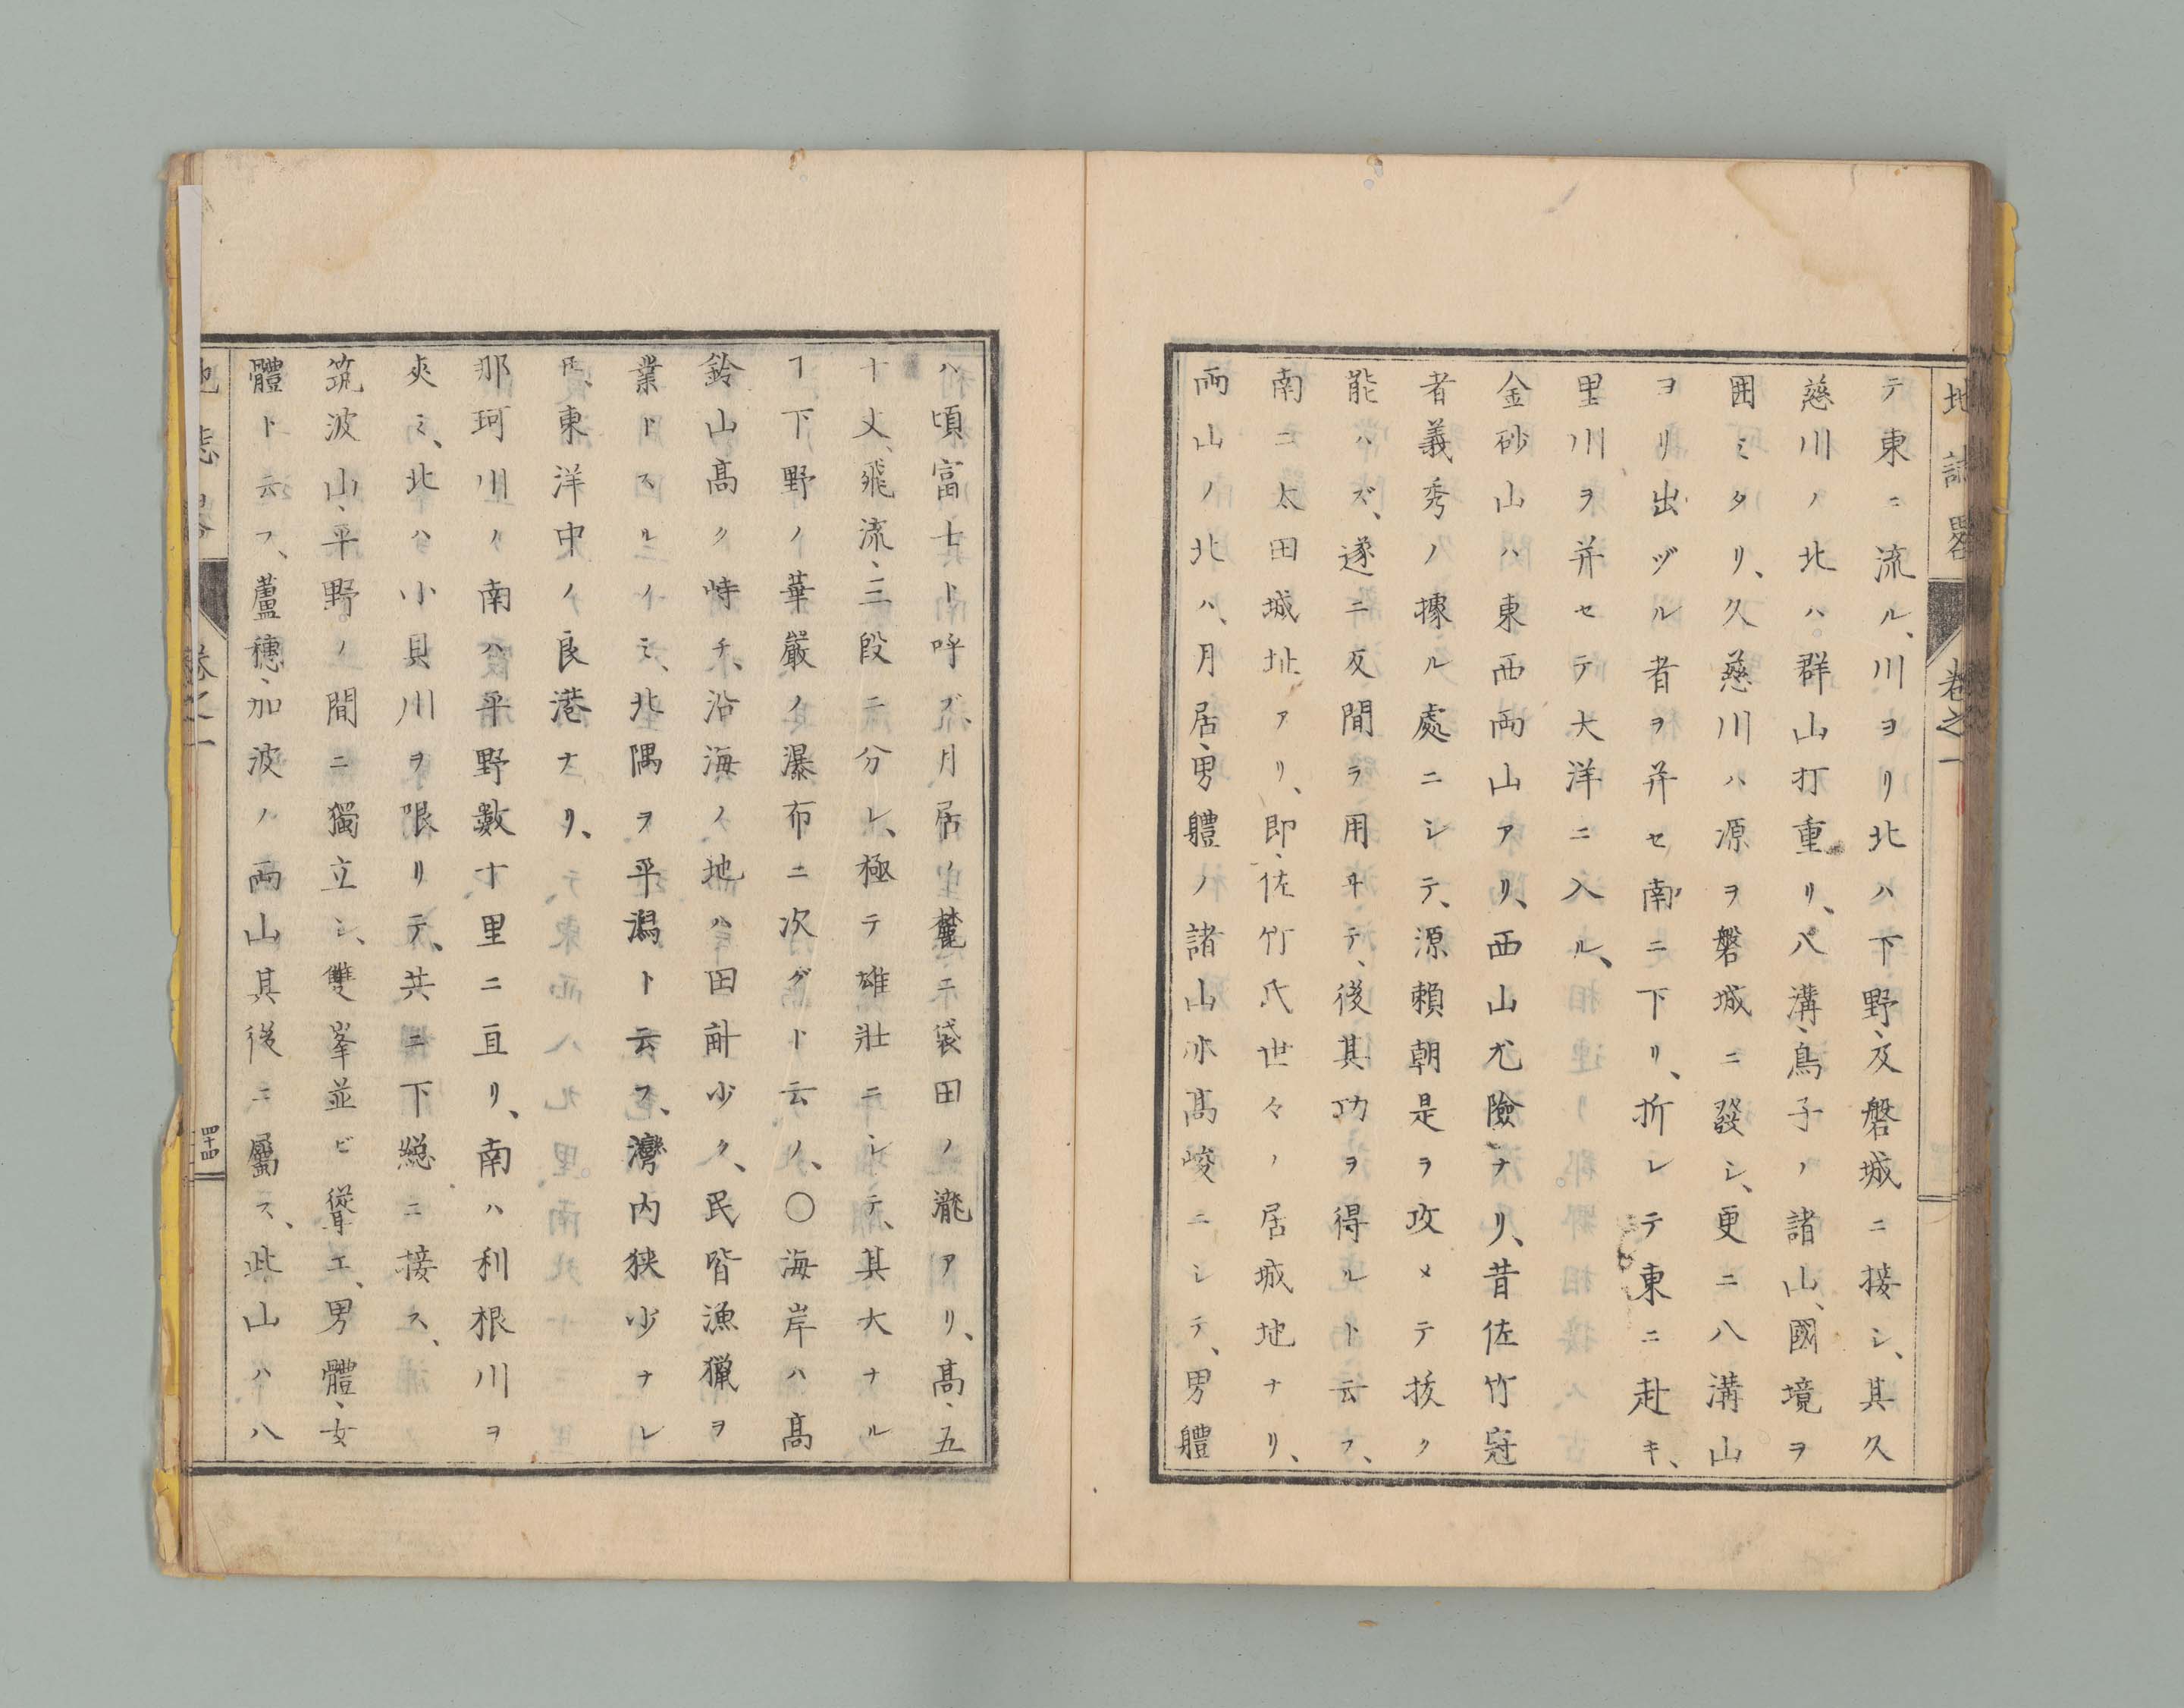 地誌畧 卷之一
テ東ニ流ル、川ヨリ北ハ下野、及磐城ニ接シ、其久
慈川ノ北ハ群山打重リ、八溝、鳥子ノ諸山、國境ヲ
囲ミタリ、久慈川ハ源ヲ磐城ニ發シ、更ニ八溝山
ヨリ出ヅル者ヲ并セ南ニ下リ、折レテ東ニ赴キ、
里川ヲ并セテ大洋ニ入ル、
金砂山ハ東西両山アリ、西山尤險ナリ、昔佐竹冠
者義秀ノ據ル處ニシテ、源頼朝是ヲ攻メテ抜ク
能ハズ、遂ニ反間ヲ用ヰテ、後其功ヲ得ルト云フ、
南ニ太田城址アリ、即、佐竹氏世々ノ居城地ナリ、
両山ノ北ハ、月居、男軆ノ諸山亦高峻ニシテ、男軆
ハ頃富士ト呼ブ、月居ノ麓ニ袋田ノ瀧アリ、高、五
十丈、飛流、三段ニ分レ、極テ雄壯ニシテ、其大ナル
ヿ下野ノ華嚴ノ瀑布ニ次グト云ノ、〇海岸ハ高
鈴山高ク峙チ、沿海ノ地ハ田畊少ク、民皆漁獵ヲ
業トスルノミ、北隅ヲ平潟ト云フ、灣内狭少ナレ
𪜈、東洋中ノ良港ナリ、
那珂川ノ南ハ平野數十里ニ亘リ、南ハ利根川ヲ
夾ミ、北ハ小貝川ヲ限リテ、共ニ下総ニ接ス、
筑波山、平野ノ間ニ獨立シ、雙峯並ビ聳エ、男體、女
體ト云フ、蘆穗、加波ノ両山其後ニ屬ス、此山ハ八
地誌畧 卷之一 四十四